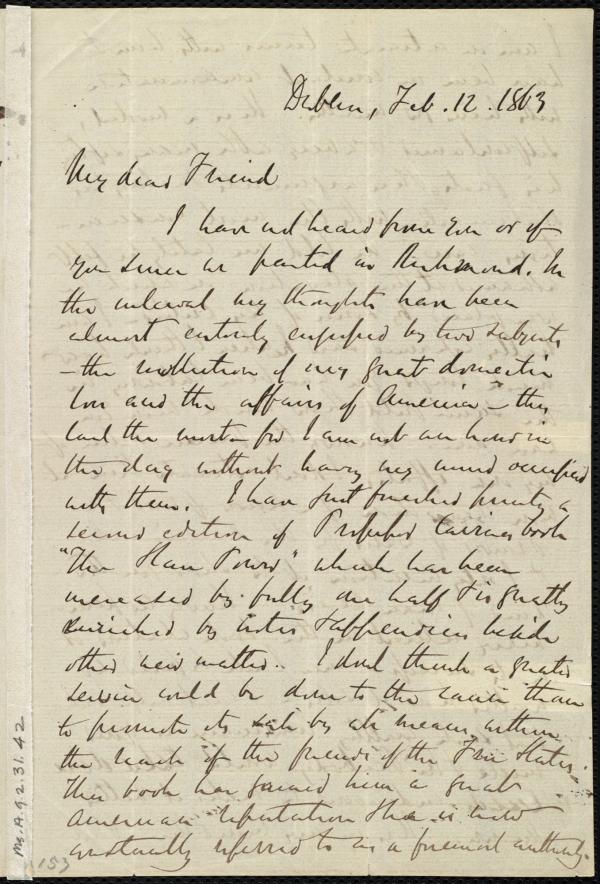 Dublin, Feb. 12. 1863
My dear Friend
I have not heard from you or of
you since we parted in Richmond. In
the interval my thoughts have been
almost entirely engaged by two subjects
- the recollection of my great domestic
loss and the affairs of America - this
last the most - for I am not an hour in
the day without having my mind occupied
with them. I have just finished printing a
second edition of Professor Cairnes book
"The Slave Power" which has been
increased by fully one half & is greatly
enriched by notes & appendices beside
other new matter. I dont think a greater
service could be done to the cause than
to promote its sale by all means within
the reach of the friends of the Free States.
This book has gained him a great
American reputation & he is now
constantly referred to as a foremost authority.
Ms. A. 9. 2. 31. 42
153